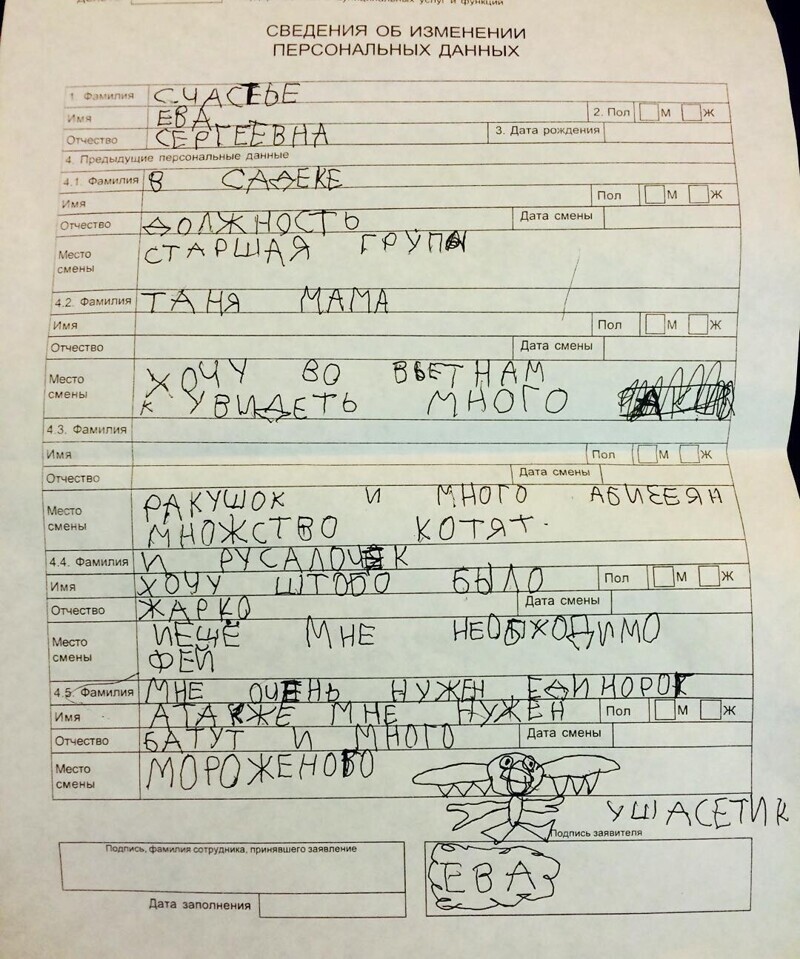 услуг и функции
СВЕДЕНИЯ ОБ ИЗМЕНЕНИИ
ПЕРСОНАЛЬНЫХ ДАННЫХ
1. Фамилия СЧАСТЬЕ
Имя ЕВА 2. Пол М Ж
Отчество СЕРГЕЕВНА 3. Дата рождения
4. Предыдущие персональные данные
4.1. Фамилия В САДЕКЕ
Имя Пол М Ж
Отчество ДОЛЖНОСТЬ Дата смены
Место смены СТАРШАЯ ГРУПА
4.2. Фамилия ТАНЯ МАМА
Имя Пол М Ж
Отчество Дата смены
Место ХОЧУ ВО ВЬЕТНАМ
смены К УВИДЕТЬ МНОГО
4.3. Фамилия
Имя Пол М Ж
Отчество Дата смены
Место РАКУШОК И МНОГО АБИЗЕЯН
смены МНОЖСТВО КОТЯТ.
4.4. Фамилия И РУСАЛОЧЕК
Имя ХОЧУ ШТОБО БЫЛО Пол М Ж
Отчество ЖАРКО Дата смены
Место ИЕЩЁ МНЕ НЕОБХОДИМО
смены ФЕЙ
4.5. Фамилия МНЕ ОЧЕНЬ НУЖЕН ЕДИНОРОГ
Имя АТАКЖЕ МНЕ НУЖЕН Пол М Ж
Отчество БАТУТ И МНОГО Дата смены
Место смены МОРОЖЕНОВО
УШАСЕТИК
Подпись заявителя
Подпись, фамилия сотрудника, принявшего заявление
ЕВА
Дата заполнения